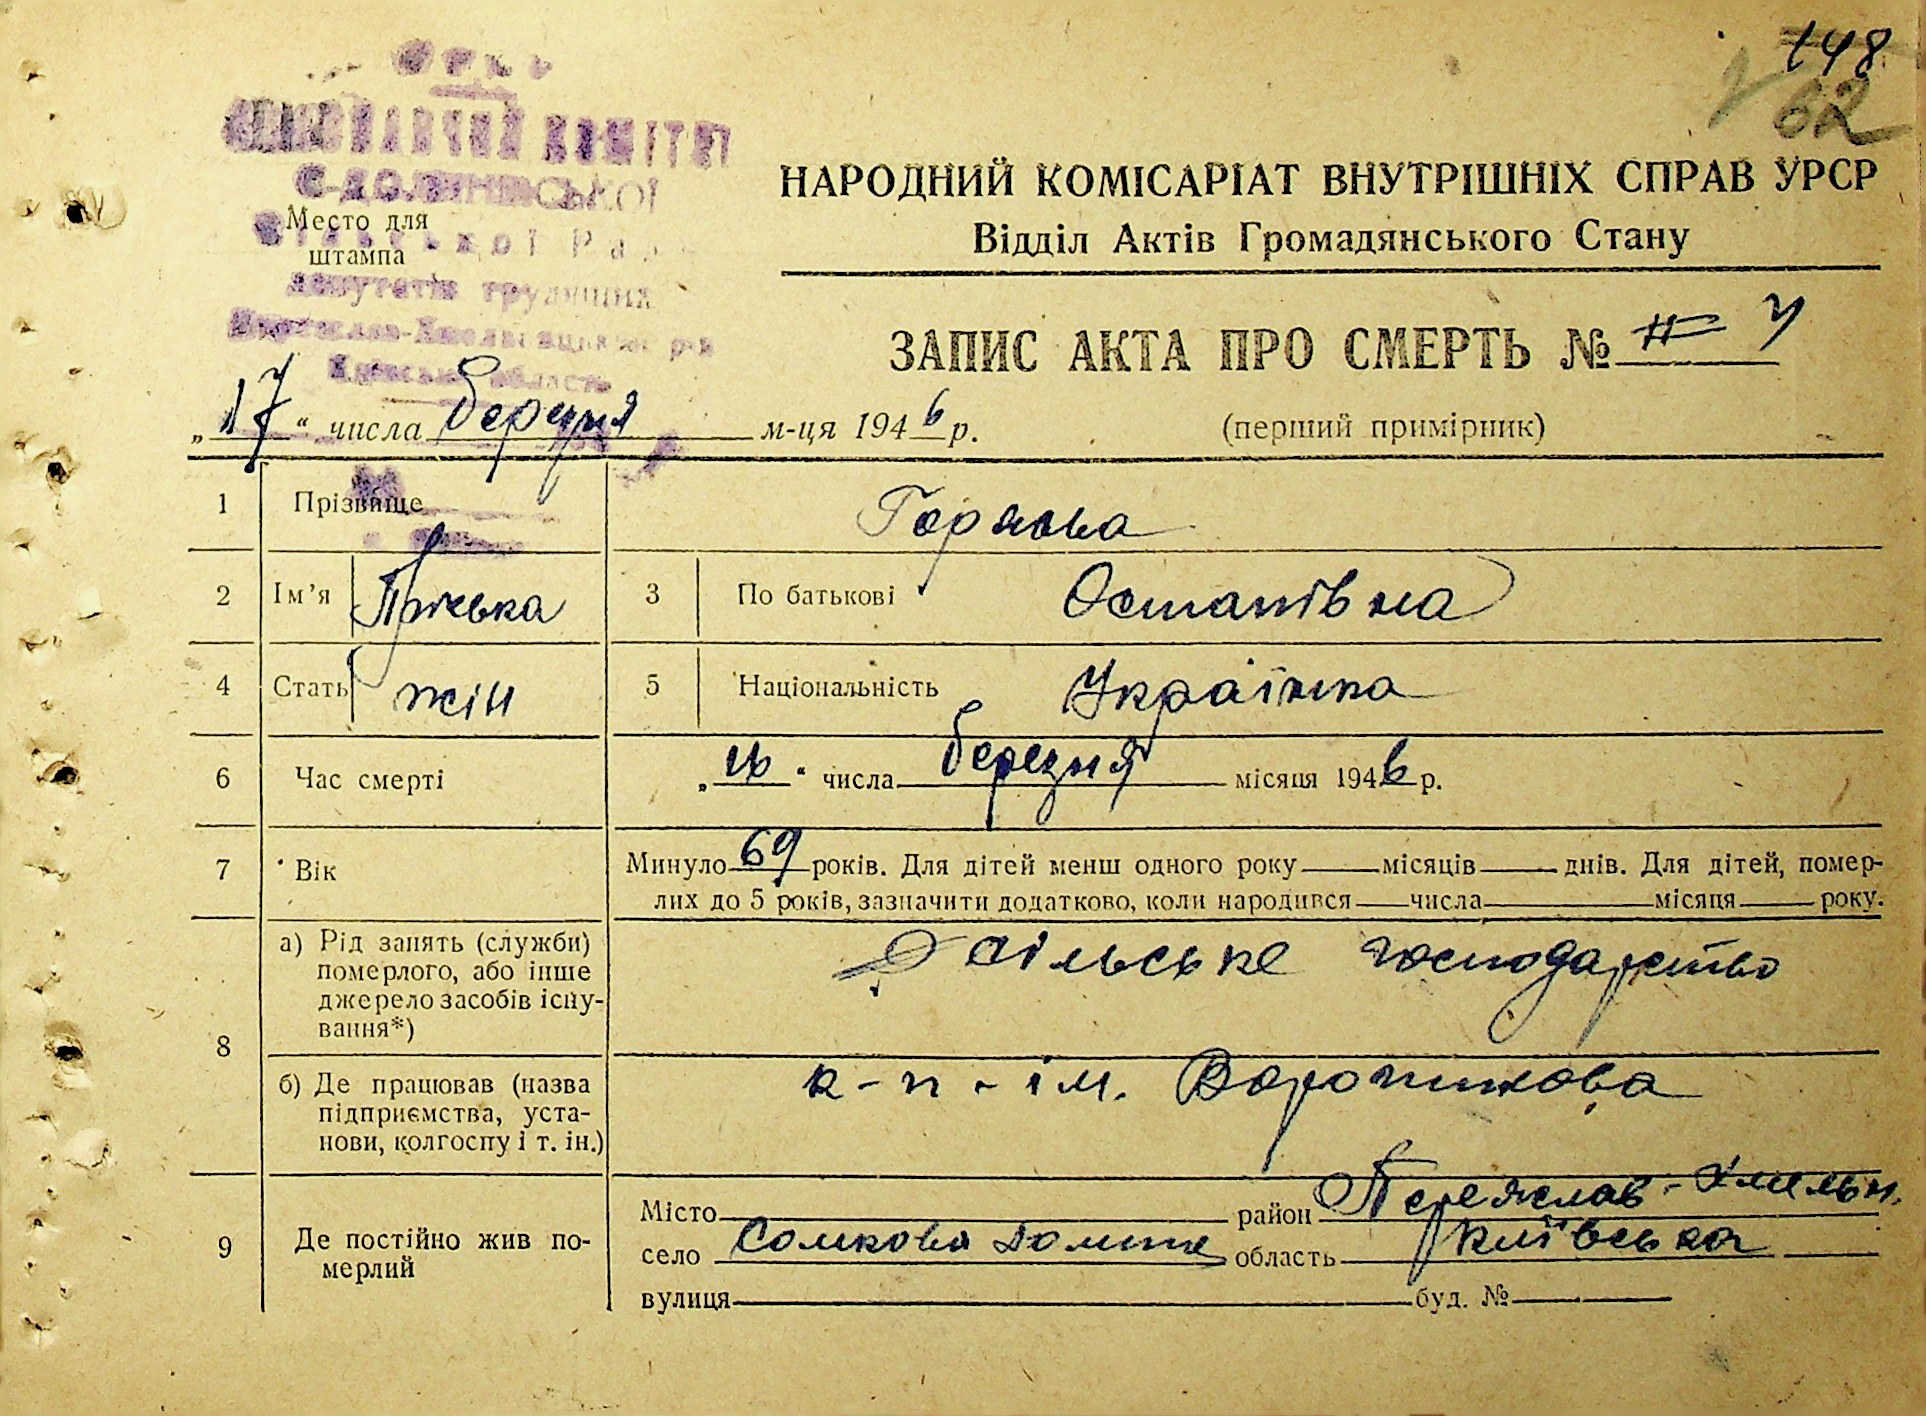 148
62
НАРОДНИЙ КОМІСАРІАТ ВНУТРІШНІХ СПРАВ УРСР
Відділ Актів Громадянського Стану
Место для
штампа
депутатів трудящих
ЗАПИС АКТА ПРО СМЕРТЬ №
„17“ числа березня м-ця 1946 р.
(перший примірник)
1 Прізвище
2 Ім’я Пріська 3 По батькові Остапівна
4 Стать жін 5 Національність Українка
6 Час смерті „16“ числа березня місяця 1946 р.
7 Вік Минуло 69 років. Для дітей менш одного року місяців днів. Для дітей, помер-
лих до 5 років, зазначити додатково, коли народився числа місяця року.
8 а) Рід занять (служби) померлого, або інше джерело засобів існу-
вання*) сільське господарство
б) Де працював (назва підприємства, уста-
нови, колгоспу і т. ін.) к-п - ім. Ворошилова
9 Де постійно жив по-
мерлий
Місто район Переяслав-Хмельн.
село Сомкова Долина область Київська
вулиця буд. №